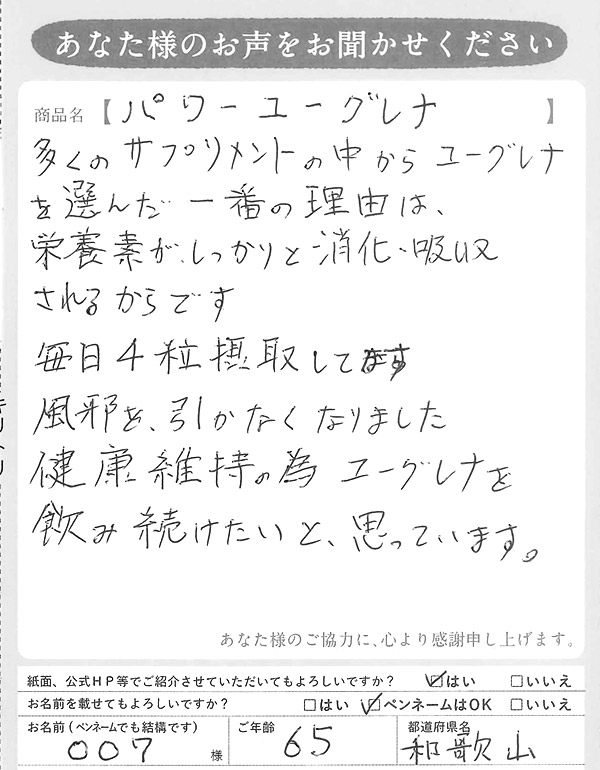 あなた様のお声をお聞かせください
商品名【パワーユーグレナ】
多くのサプリメントの中からユーグレナ
を選んだ一番の理由は、
栄養素がしっかりと消化・吸収
されるからです
毎日4粒摂取してます
風邪を、引かなくなりました
健康維持の為ユーグレナを
飲み続けたいと、思っています。
あなた様のご協力に、心より感謝申し上げます。
キリトリ
紙面、公式HP等でご紹介させていただいてもよろしいですか？ ☑はい □いいえ
お名前を載せてもよろしいですか？ □はい ☑ペンネームはOK □いいえ
お名前（ペンネームでも結構です） ご年齢 都道府県名
007 様 65 和歌山